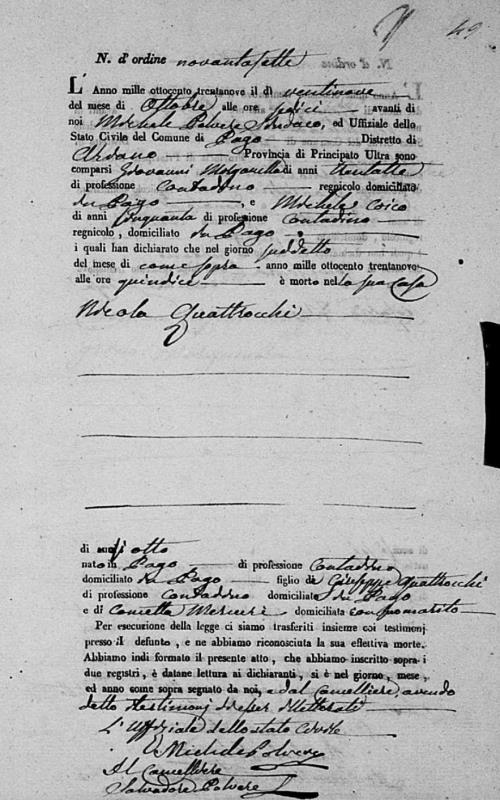 49
N. d'ordine novantasette
L' Anno mille ottocento trentanove il dì ventinove
del mese di Ottobre alle ore sedici avanti di
noi Michele Polvere Sindaco, ed Uffiziale dello
Stato Civile del Comune di Pago Distretto di
Ariano Provincia di Principato Ultra sono
comparsi Giovanni di anni trentatre
di professione Contadino regnicolo domiciliato
in Pago , e Michele Coico
di anni cinquanta di professione contadino
regnicolo, domiciliato in Pago
i quali han dichiarato che nel giorno suddetto
del mese di come sopra anno mille ottocento trentanove
alle ore quindici è morto nella sua casa
Nicola Quattrocchi
di anni otto
nato in Pago di professione Contadino
domiciliato in Pago figlio di Giuseppe Quattrocchi
di professione contadino domiciliato in Pago
e di domiciliata con suo marito
Per esecuzione della legge ci siamo trasferiti insieme coi testimonj
presso il defunto, e ne abbiamo riconosciuta la sua effettiva morte.
Abbiamo indi formato il presente atto, che abbiamo inscritto sopra i
due registri, è datane lettura ai dichiaranti, si è nel giorno, mese,
ed anno come sopra segnato da noi, e dal Cancelliere, avendo
detto i testimonj di esser illetterati
L'Uffiziale dello stato Civile
Michele Polvere
Il Cancelliere
Salvadore Polvere